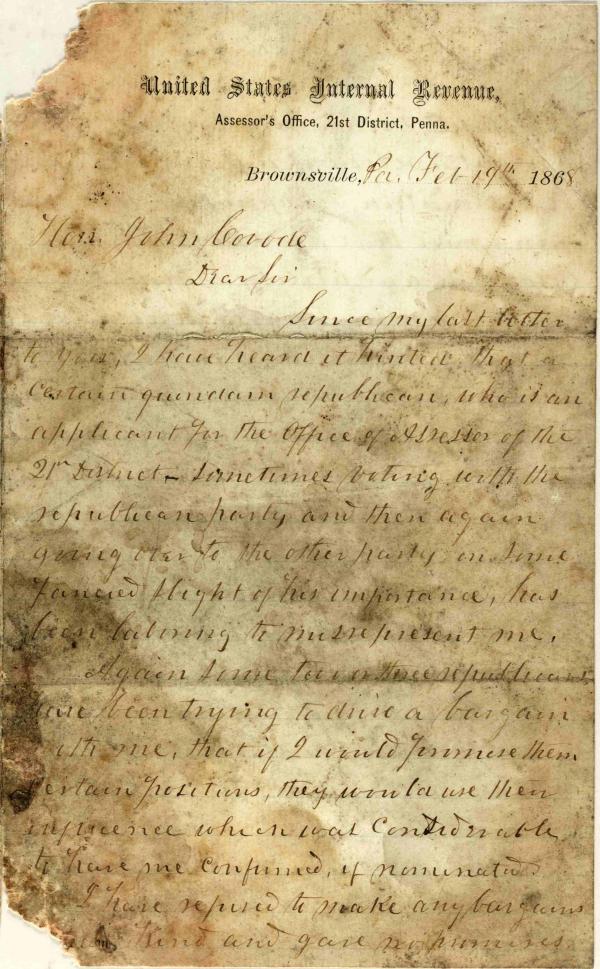 United States Internal Revenue,
Assessor's Office, 21st District, Penna.
Brownsville, Pa. Feb 19th 1868
Hon. John Covode
Dear Sir
Since my last letter
to you, I have heard it hinted that a
certain quondam republican, who is an
applicant for the Office of Assessor of the
21st District – sometimes voting with the
republican party and then again
going over to the other party on some
fancied slight of his importance, has
been laboring to misrepresent me.
Again some two or three republicans
have been trying to drive a bargain
with me, that if I would promise them
certain positions, they would use their
influence which was considerable
to have me confirmed, if nominated
I have refused to make any bargains
kind and gave no promises